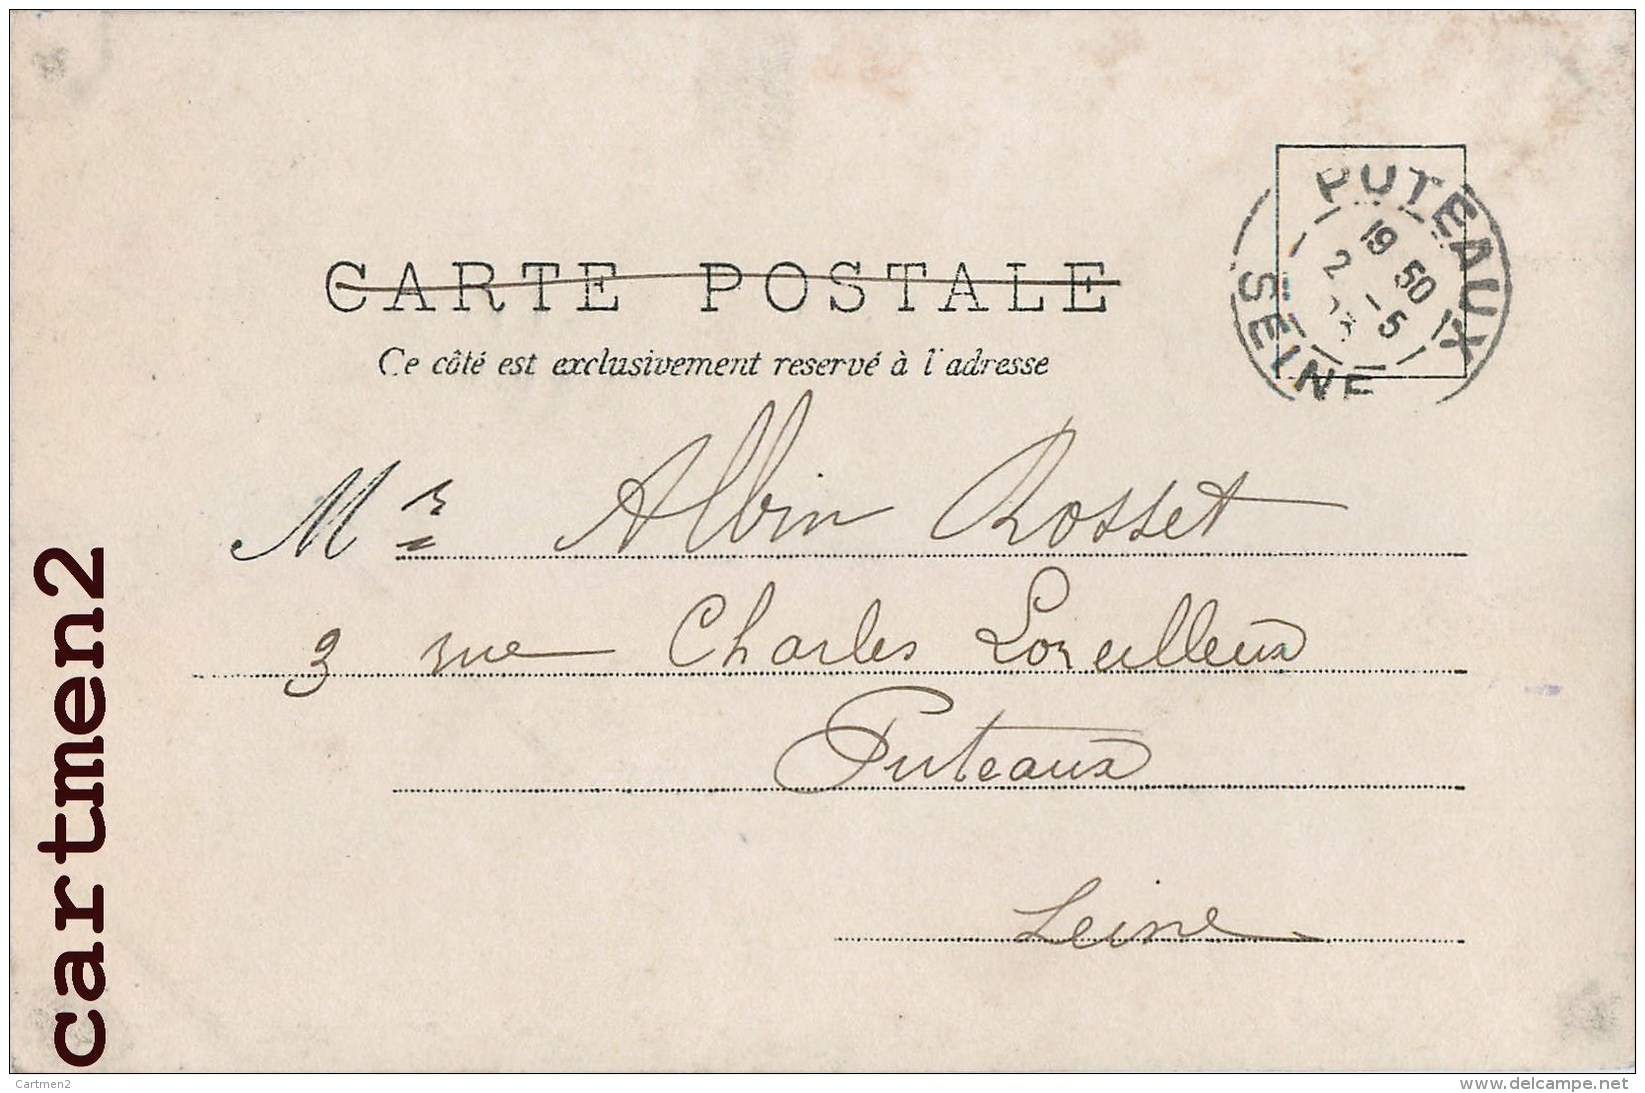 CARTE POSTALE
Ce côté est exclusivement reservé à l'adresse
PUTEAUX
19 50
2 - 5
SEINE
Mr Albin Rosset
3 rue Charles Lorilleux
Puteaux
Seine
cartmen2
Cartmen2
www.delcampe.net